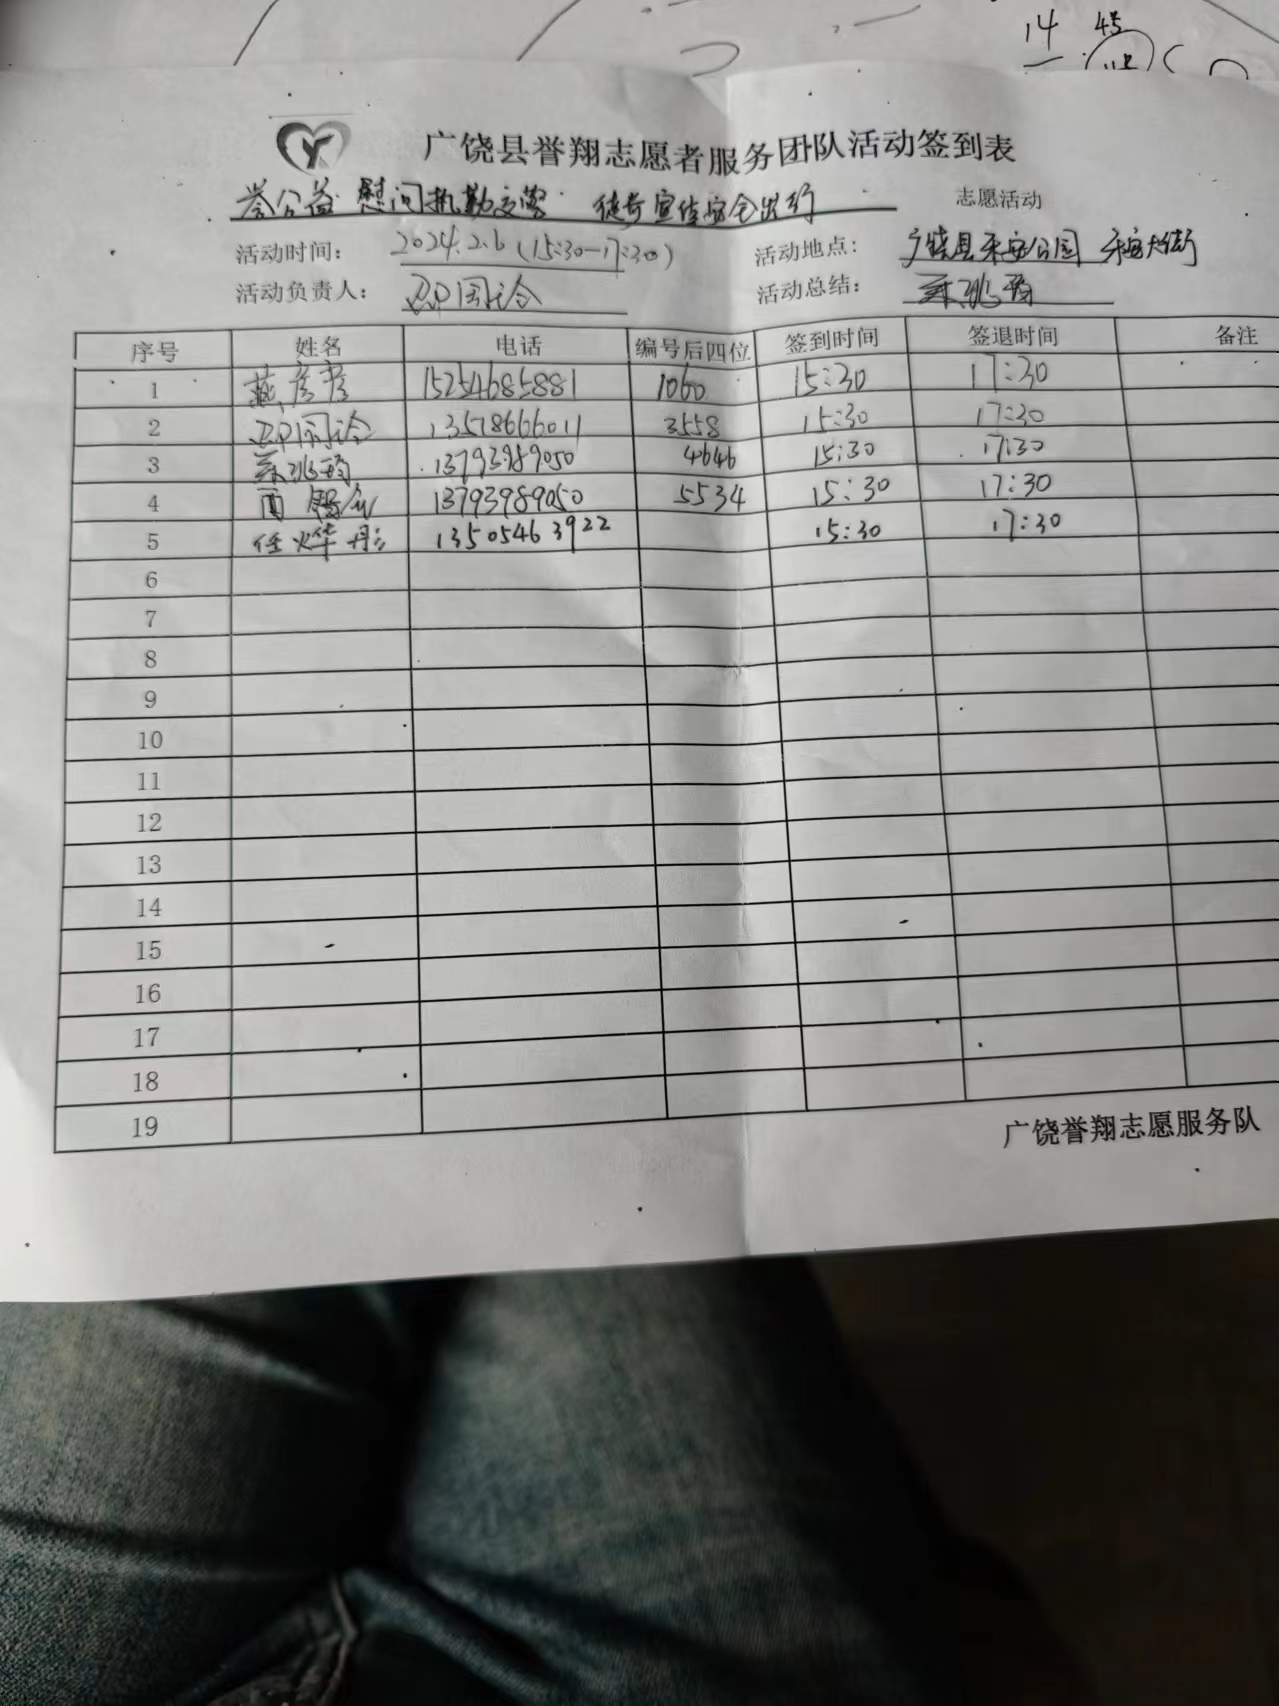 14 45
广饶县誉翔志愿者服务团队活动签到表
誉公益 慰问执勤交警 徒步宣传安全出行 志愿活动
活动时间： 2024.2.6（15:30—17:30） 活动地点： 广饶县乐安公园 乐安大街
活动负责人： 活动总结：
序号 姓名 电话 编号后四位 签到时间 签退时间 备注
1 燕彦彦 15254685881 1060 15:30 17:30
2 13578666011 3558 15:30 17:30
3 13793989050 4646 15:30 17:30
4 13793989050 5534 15:30 17:30
5 任烨彤 13505463922 15:30 17:30
6
7
8
9
10
11
12
13
14
15
16
17
18
19
广饶誉翔志愿服务队